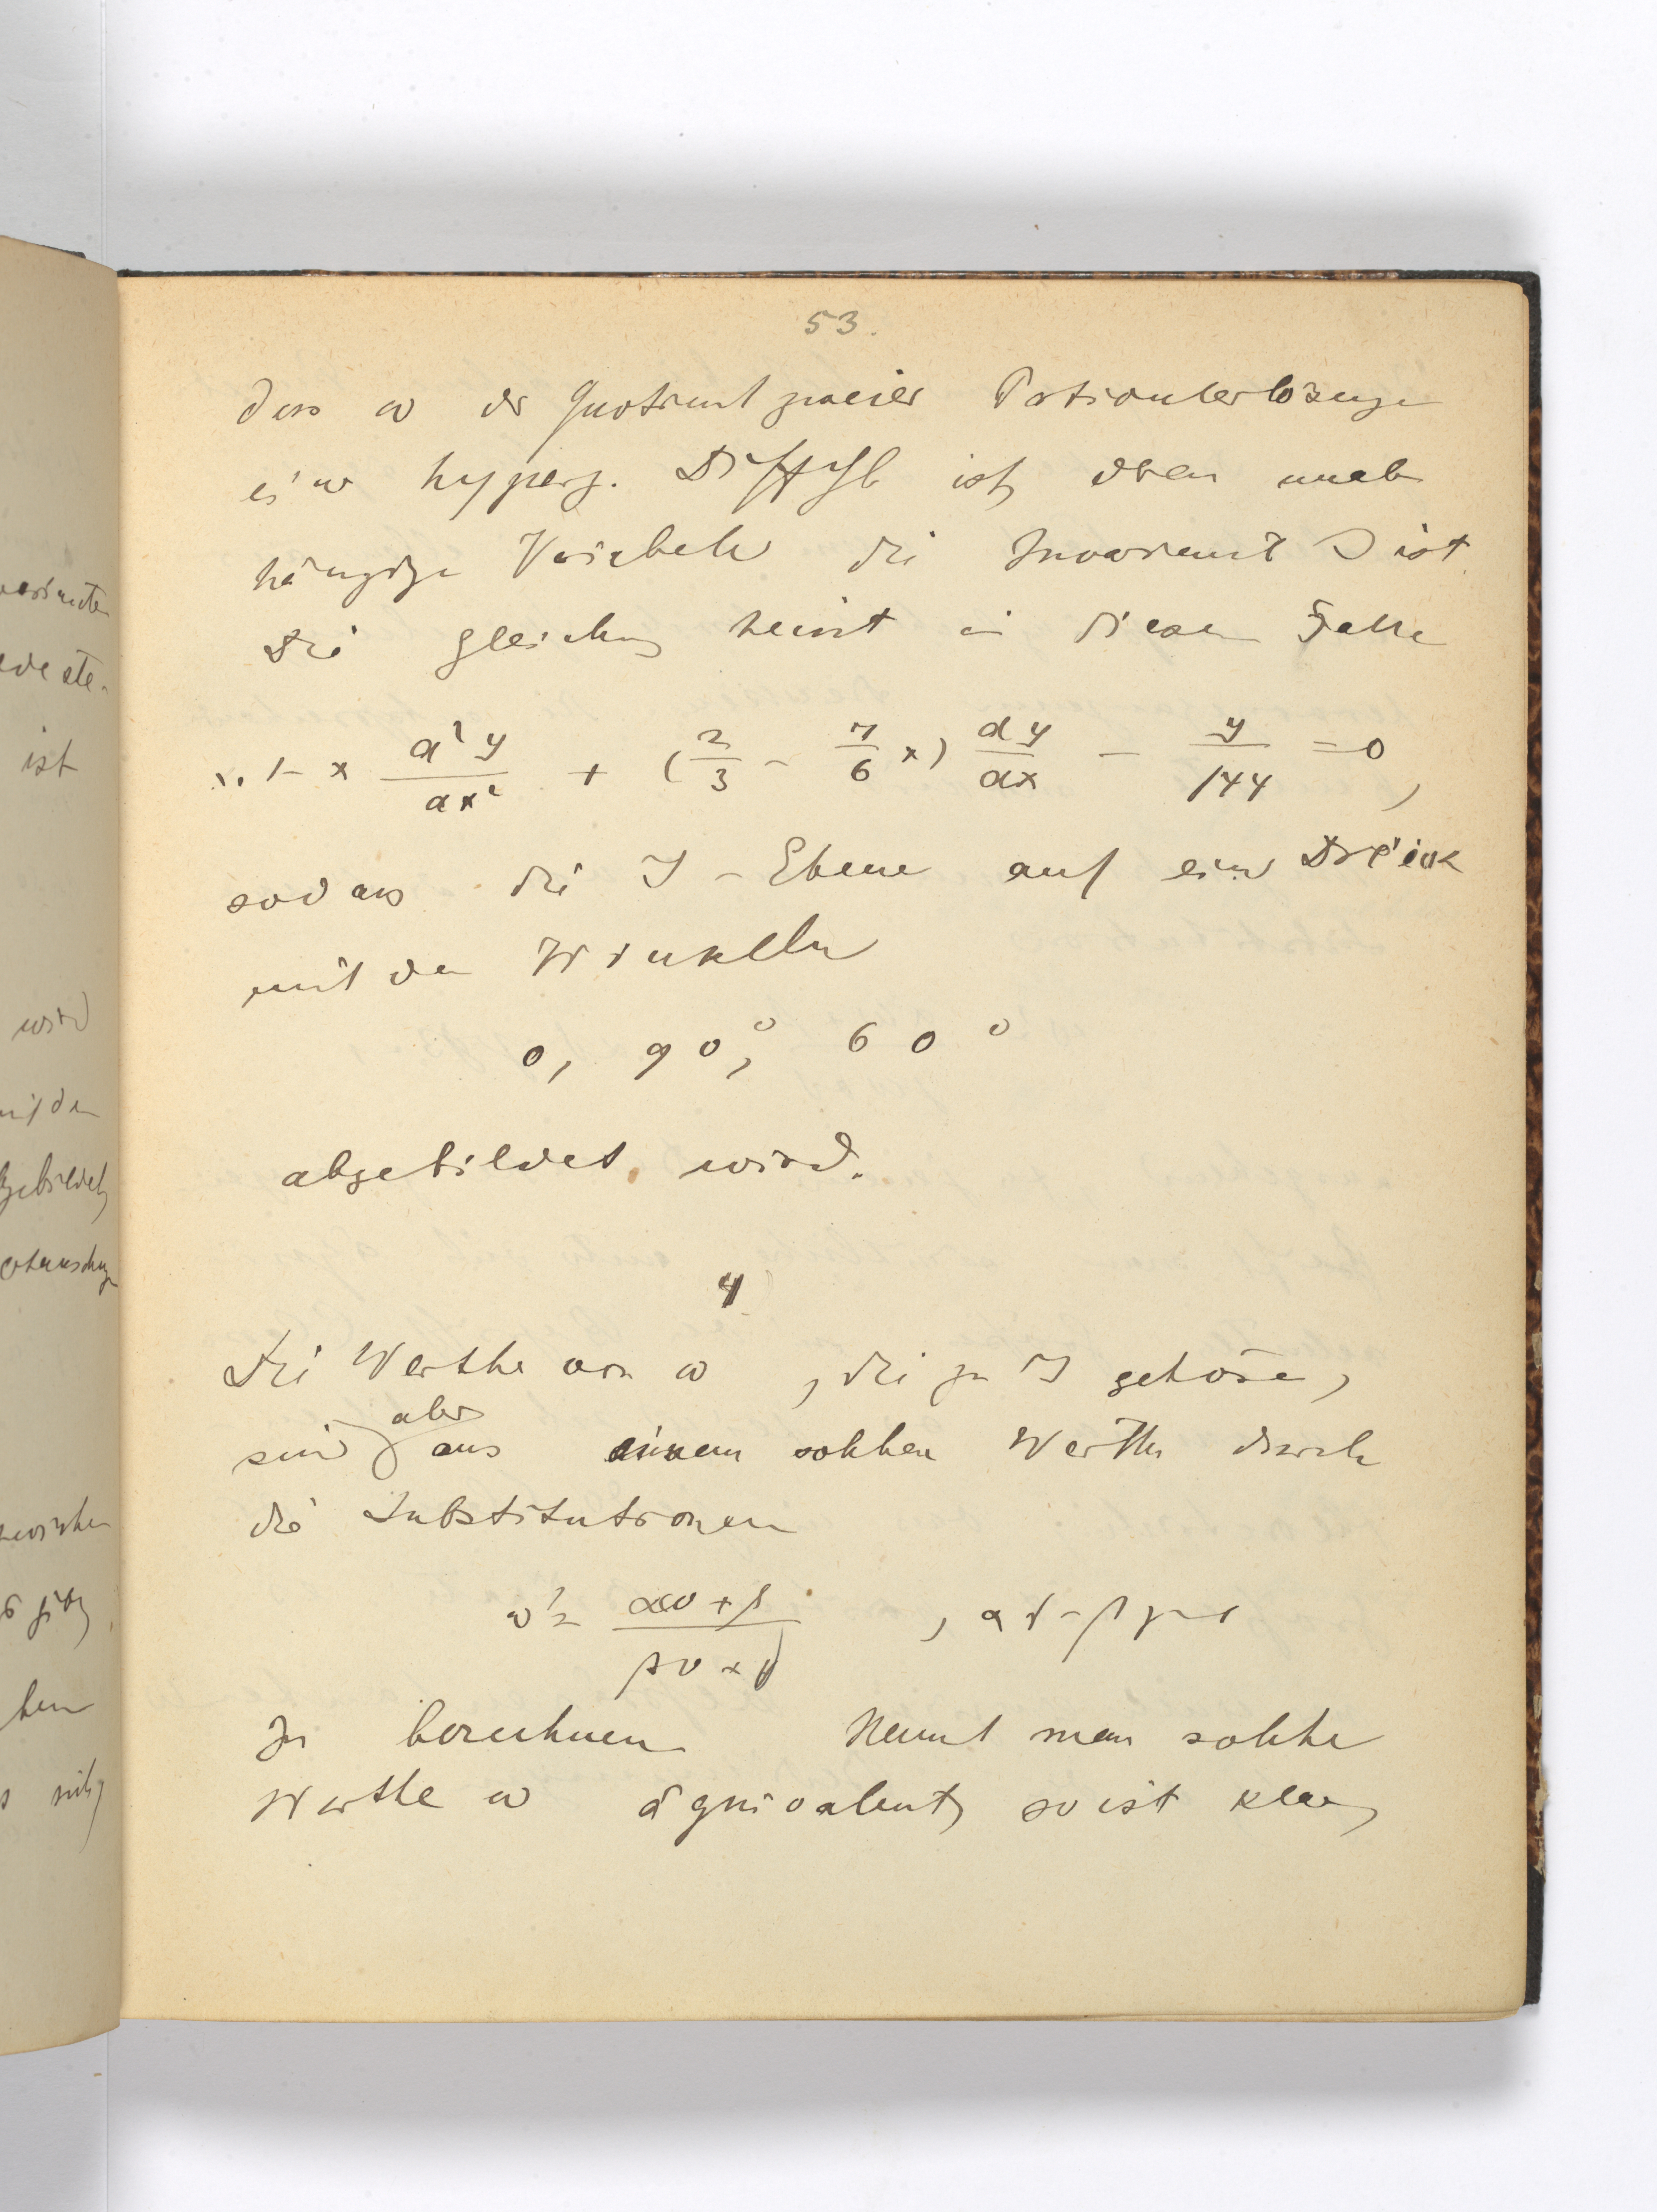 53.
dass ω der Quotient zweier Particulerlösungen
einer hyperg. DiffGl ist, deren unab
hängige Variabele die Invariante J ist.
Die Gleichung heisst in diesem Falle
x. 1 - x d²y/dx² + (2/3 - 7/6 x) dy/dx - y/144 = 0,
sodass die J-Ebene auf ein Dreieck
mit den Winkeln
0, 90°, 60°
abgebildet wird.
4
Die Werthe von ω, die zu J gehören,
sind aber aus einem solchen Werthe durch
die Substitutionen
ω' = αω+β / γω+δ, αδ-βγ=1
zu berechnen Nennt man solche
Werthe ω äquivalent, so ist klar,
ist
wird
mit den